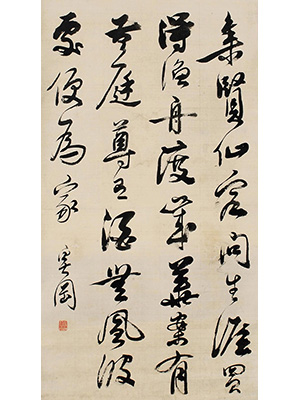 集賢仙客問生涯買
得漁舟度歲華案有
黃庭尊有酒無風波
處便為家